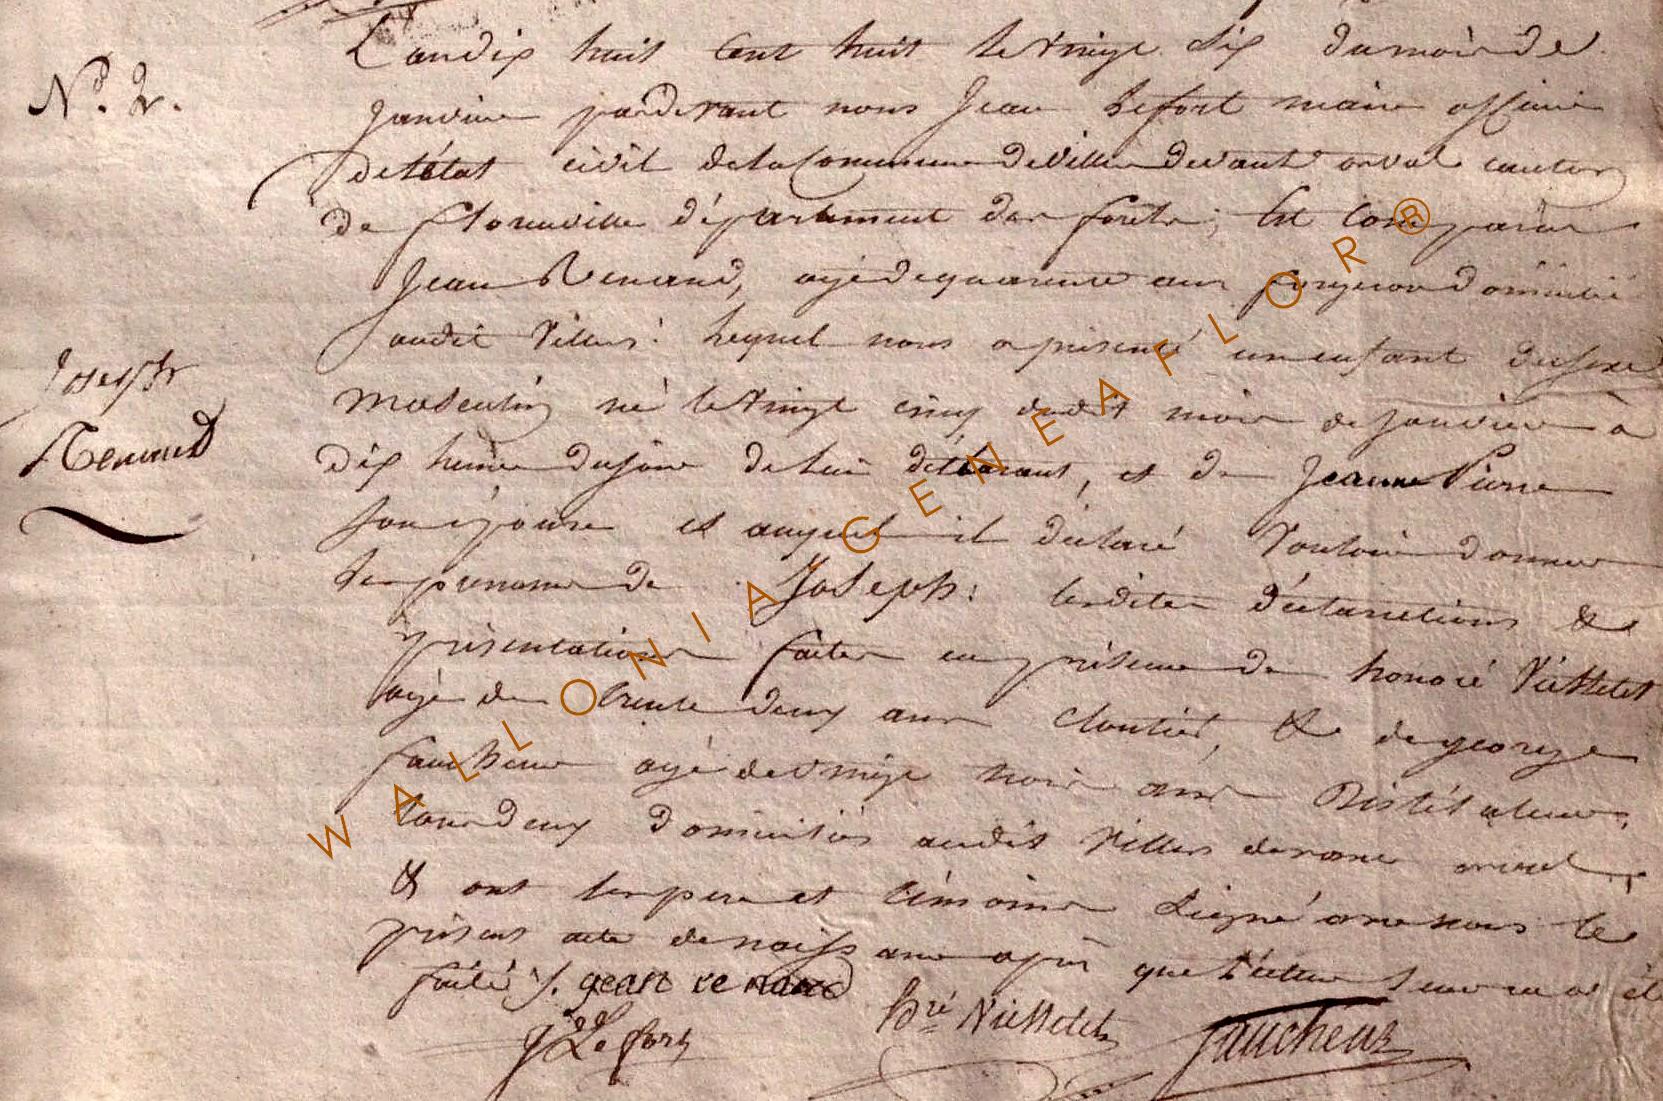 N.º 2.
L'an dix huit Cent huit le vingt Six du mois de
janvier pardevant nous Jean Lefort maire officier
de l'état civil de la Commune de Villers devant orval canton
de florenville département des forêts; Est Comparu
Jean Renard, agé de quarante ans forgeron domicilié
audit Villers: Lequel nous a présenté un enfant du sexe
Joseph
Renard
masculin né le vingt cinq dudit mois de janvier à
dix heures du jour de lui déclarant, et de Jeanne Pierre
son épouse et auquel il déclaré vouloir donner
les prenoms de Joseph: lesdites déclarations &
présentations faites en présence de honoré Viellelet
agé de trente deux ans Cloutier, & de george
faucheur agé de vingt trois ans
tous deux domiciliés audit Villers devant orval,
& ont les pere et témoins Signé avec nous le
présent acte de naissance après que lecture leur en a été
faite ./. gean renard
J Le fort
hré Viellelet
faucheur
WALLONIA GENEAFLOR ®